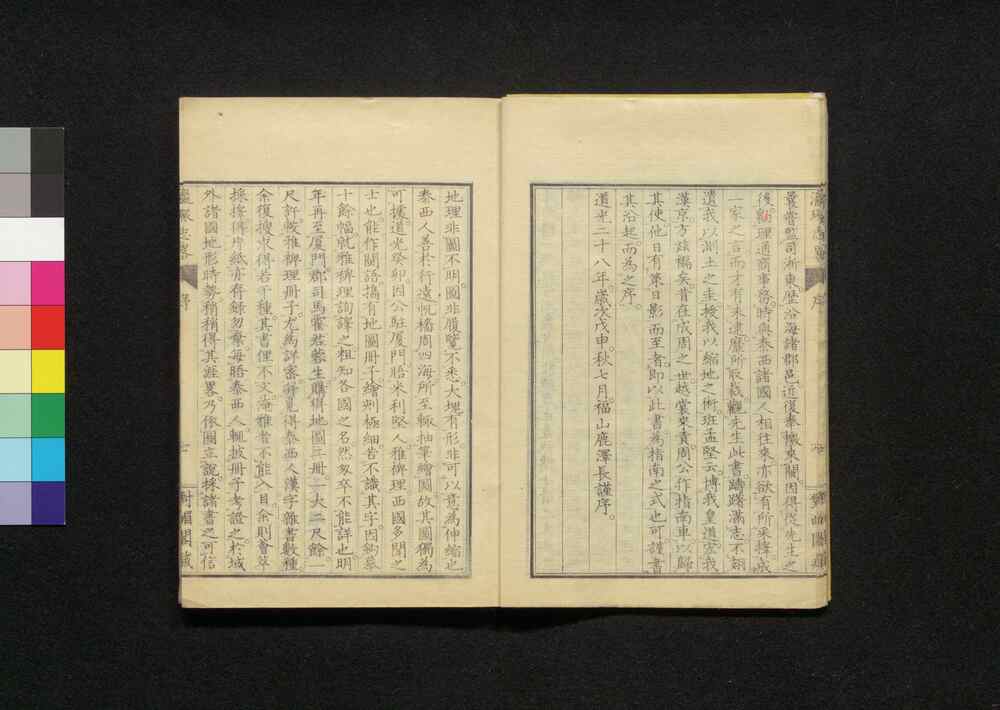 瀛環志畧
序
曩嘗監司浙東歷沿海諸郡邑近復奉檄來閩因得從先生之
後勷理通商事務時與泰西諸國人相往來亦欲有所采擇成
一家之言而才有未逮靡所取裁觀先生此書躊躇滿志不翅
遺我以測土之圭授我以縮地之術班孟堅云博我皇道宏我
漢京方茲褊矣昔在成周之世越裳來貢周公作指南車以歸
其使他日有策日影而至者即以此書為指南之式也可謹書
其沿起而為之序
道光二十八年歲次戊申秋七月福山鹿澤長謹序
地理非圖不明圖非履覽不悉大塊有形非可以意為伸縮也
泰西人善於行遠帆檣周四海所至輒抽筆繪圖故其圖獨為
可據道光癸卯因公駐厦門晤米利堅人雅裨理西國多聞之
士也能作閩語攜有地圖冊子繪刻極細苦不識其字因鉤摹
十餘幅就雅裨理詢譯之粗知各國之名然匆卒不能詳也明
年再至厦門郡司馬霍君蓉生購得地圖二冊一大二尺餘一
尺許較雅裨理冊子尤為詳密並覓得泰西人漢字雜書數種
余復搜求得若干種其書俚不文淹雅者不能入目余則薈萃
採擇得片紙亦存錄勿棄每晤泰西人輒披冊子考證之於域
外諸國地形時勢稍稍得其涯畧乃依圖立說採諸書之可信
瀛環志畧
序
七
對嵋閣藏